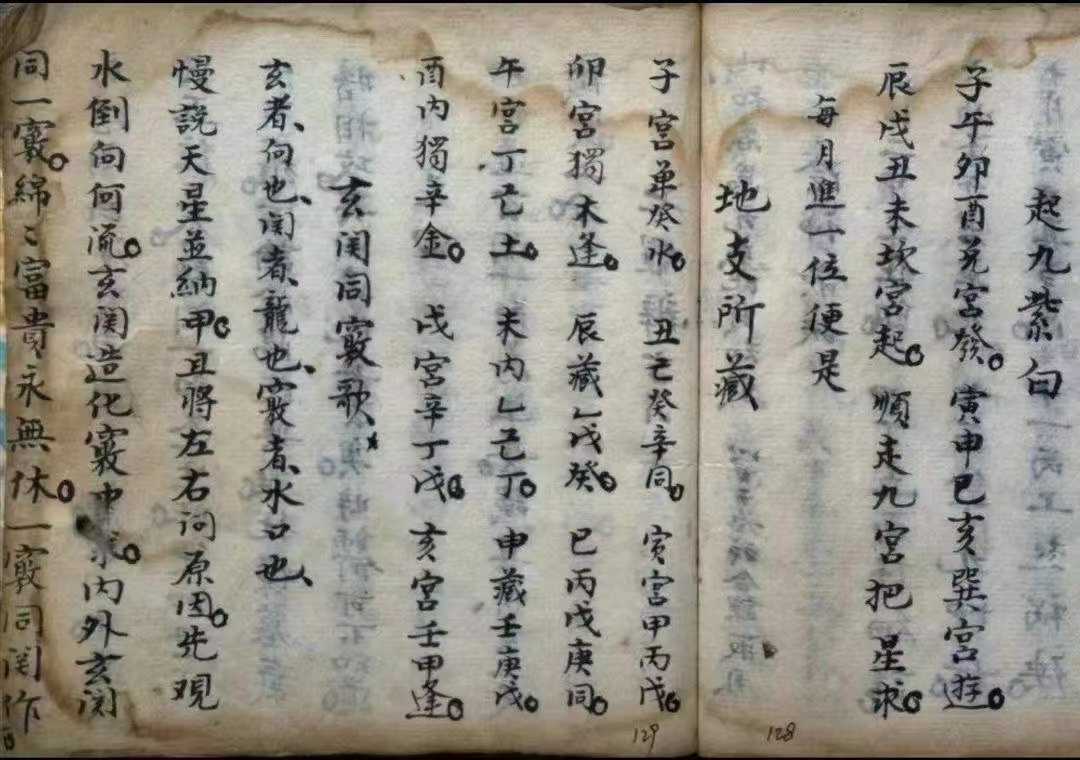 起九紫白
子午卯酉兑宮發。寅申巳亥巽宮遊。
辰戌丑未坎宮起。順走九宮把星求。
每月進一位便是
地支所藏
128
子宮單癸水。丑己癸辛同。寅宮甲丙戊。
卯宮獨木逢。辰藏乙戊癸。巳丙戊庚同。
午宮丁己土。未内乙己丁。申藏壬庚戊。
酉内獨辛金。戌宮辛丁戊。亥宮壬甲逢。
玄関同竅歌
玄者、向也、関者、龍也、竅者、水口也、
慢説天星並納甲。且將左右问原因。先观
水倒向何流。玄関造化竅中求。内外玄関
同一竅。綿〻富貴永無休。一竅同関作
129